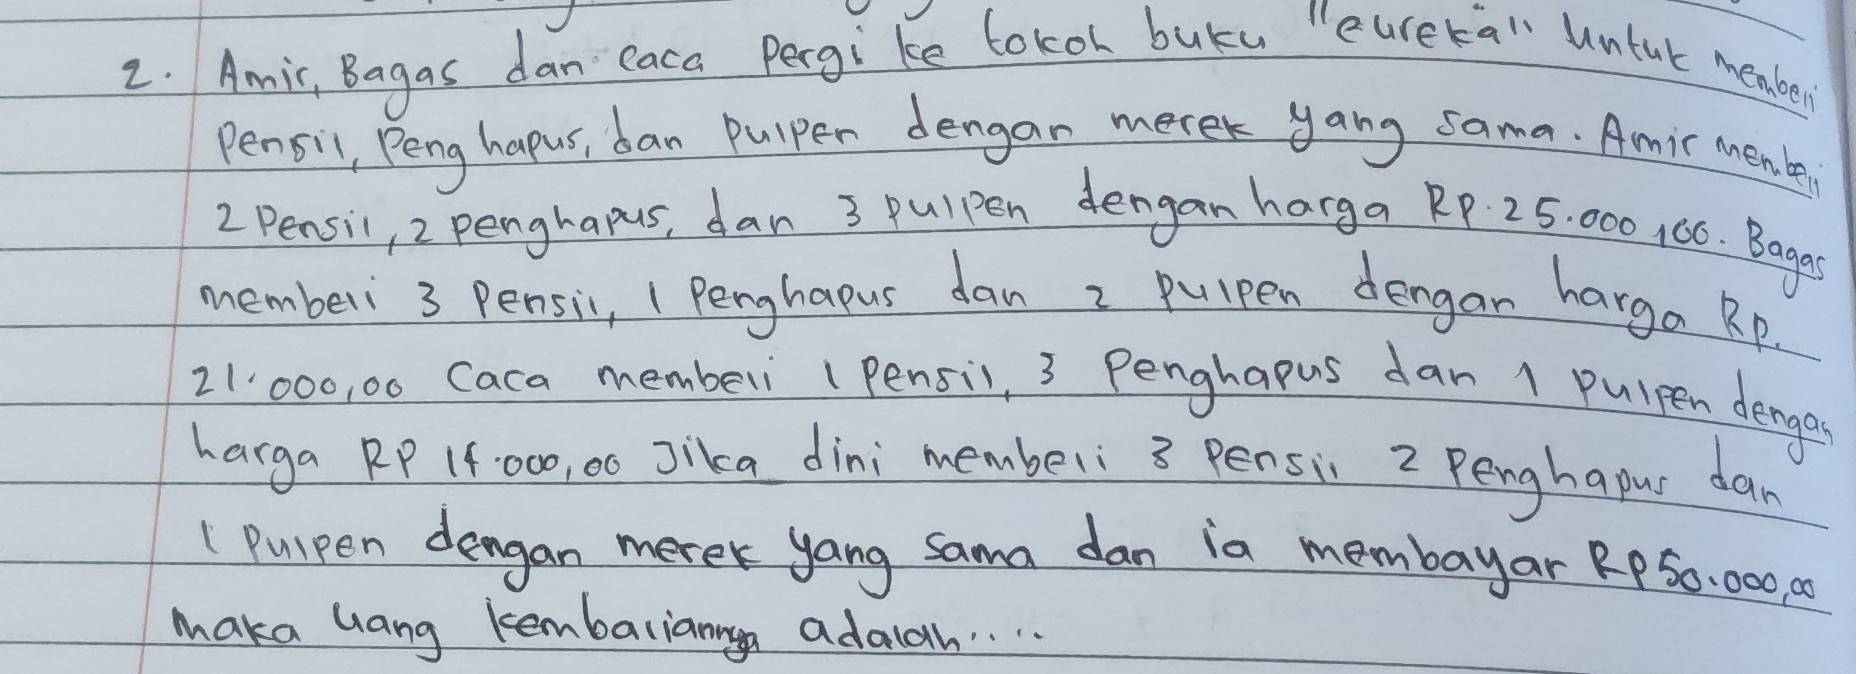 2. Amir, Bagas dan caca Pergi ke tokoh buku "eureka" Untuk membeli
Pensil, Peng hapus, dan Pulpen dengan merek yang sama. Amir membeli
2 Pensil, 2 penghapus, dan 3 pulpen dengan harga RP. 25.000,00. Bagas
membeli 3 Pensil, 1 Penghapus dan 2 Pulpen dengan harga Rp.
21.000,00 Caca membeli 1 Pensil, 3 Penghapus dan 1 Pulpen dengan
harga RP 14.000,00 Jika dini membeli 3 Pensil 2 Penghapus dan
1 Pulpen dengan merek yang sama dan ia membayar RP 50.000,00
maka uang kembaliannya adalah....